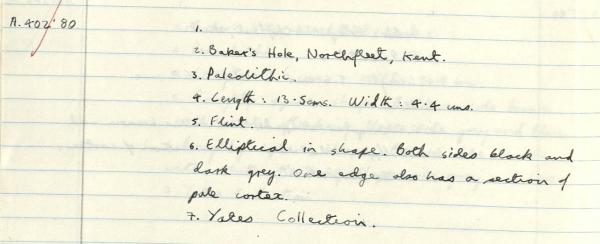 A.402'80
1.
2. Baker's Hole, Northfleet, Kent.
3. Paleolithic.
4. Length: 13.5cms. Width: 4.4 cms.
5. Flint.
6. Elliptical in shape. Both sides black and
dark grey. One edge also has a section of
pale cortex.
7. Yates Collection.